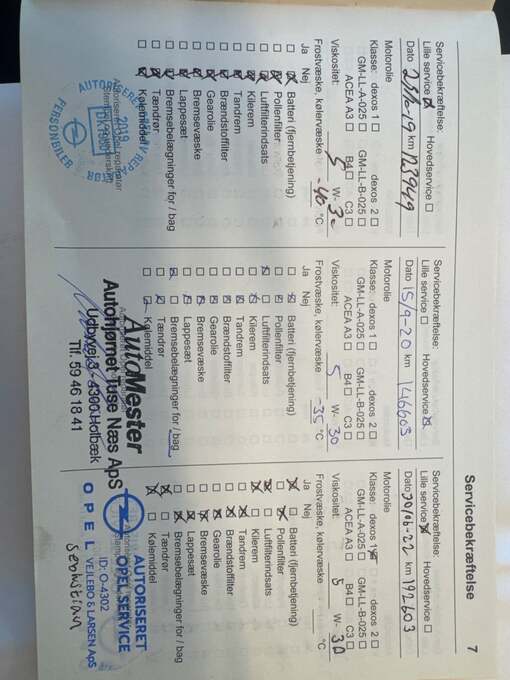 Servicebekræftelse
7
Servicebekræftelse:
Lille service Hovedservice
Dato 25/6-19 km 123949
Motorolie
Klasse: dexos 1 dexos 2
GM-LL-A-025 GM-LL-B-025
ACEA A3 B4 C3
Viskositet: 5 W- 30
Frostvæske, kølervæske -40 °C
Ja Nej
Batteri (fjernbetjening)
Pollenfilter
Luftfilterindsats
Kilerem
Tandrem
Brændstoffilter
Gearolie
Bremsevæske
Lappesæt
Bremsebelægninger for / bag
Tændrør
Kølemiddel
AUTORISERET
2019
PERSONBILER
Servicebekræftelse:
Lille service Hovedservice
Dato 15/9-20 km 146603
Motorolie
Klasse: dexos 1 dexos 2
GM-LL-A-025 GM-LL-B-025
ACEA A3 B4 C3
Viskositet: 5 W- 30
Frostvæske, kølervæske -35 °C
Ja Nej
Batteri (fjernbetjening)
Pollenfilter
Luftfilterindsats
Kilerem
Tandrem
Brændstoffilter
Gearolie
Bremsevæske
Lappesæt
Bremsebelægninger for / bag
Tændrør
Kølemiddel
AutoMester
Autohjørnet Tuse Næs ApS
Udbyvej 3 - 4300 Holbæk
Tlf. 59 46 18 41
Servicebekræftelse:
Lille service Hovedservice
Dato 20/06-22 km 192603
Motorolie
Klasse: dexos 1 dexos 2
GM-LL-A-025 GM-LL-B-025
ACEA A3 B4 C3
Viskositet: 5 W- 30
Frostvæske, kølervæske °C
Ja Nej
Batteri (fjernbetjening)
Pollenfilter
Luftfilterindsats
Kilerem
Tandrem
Brændstoffilter
Gearolie
Bremsevæske
Lappesæt
Bremsebelægninger for / bag
Tændrør
Kølemiddel
AUTORISERET
OPEL SERVICE
ID: O-4302
OPEL VEJLEBO & LARSEN ApS
Sebastian